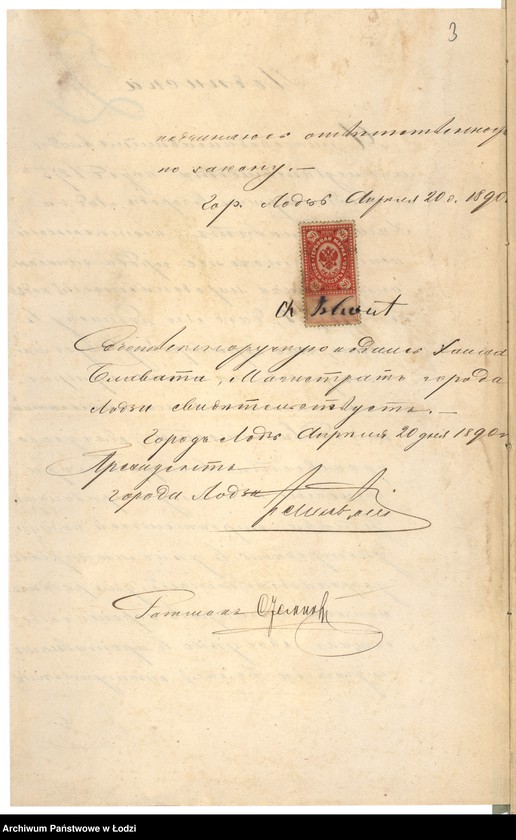 3
подчиняюсь ответственности
по закону. —
Гор. Лодзь Апреля 20 д. 1890
Ch Blwat
Собственноручную подпись Хаима
Блавата, Магистратъ города
Лодзи свидетельствуетъ. —
Городъ Лодзь Апреля 20 дня 1890 г
Президентъ
города Лодзи
Ратманъ
Archiwum Państwowe w Łodzi